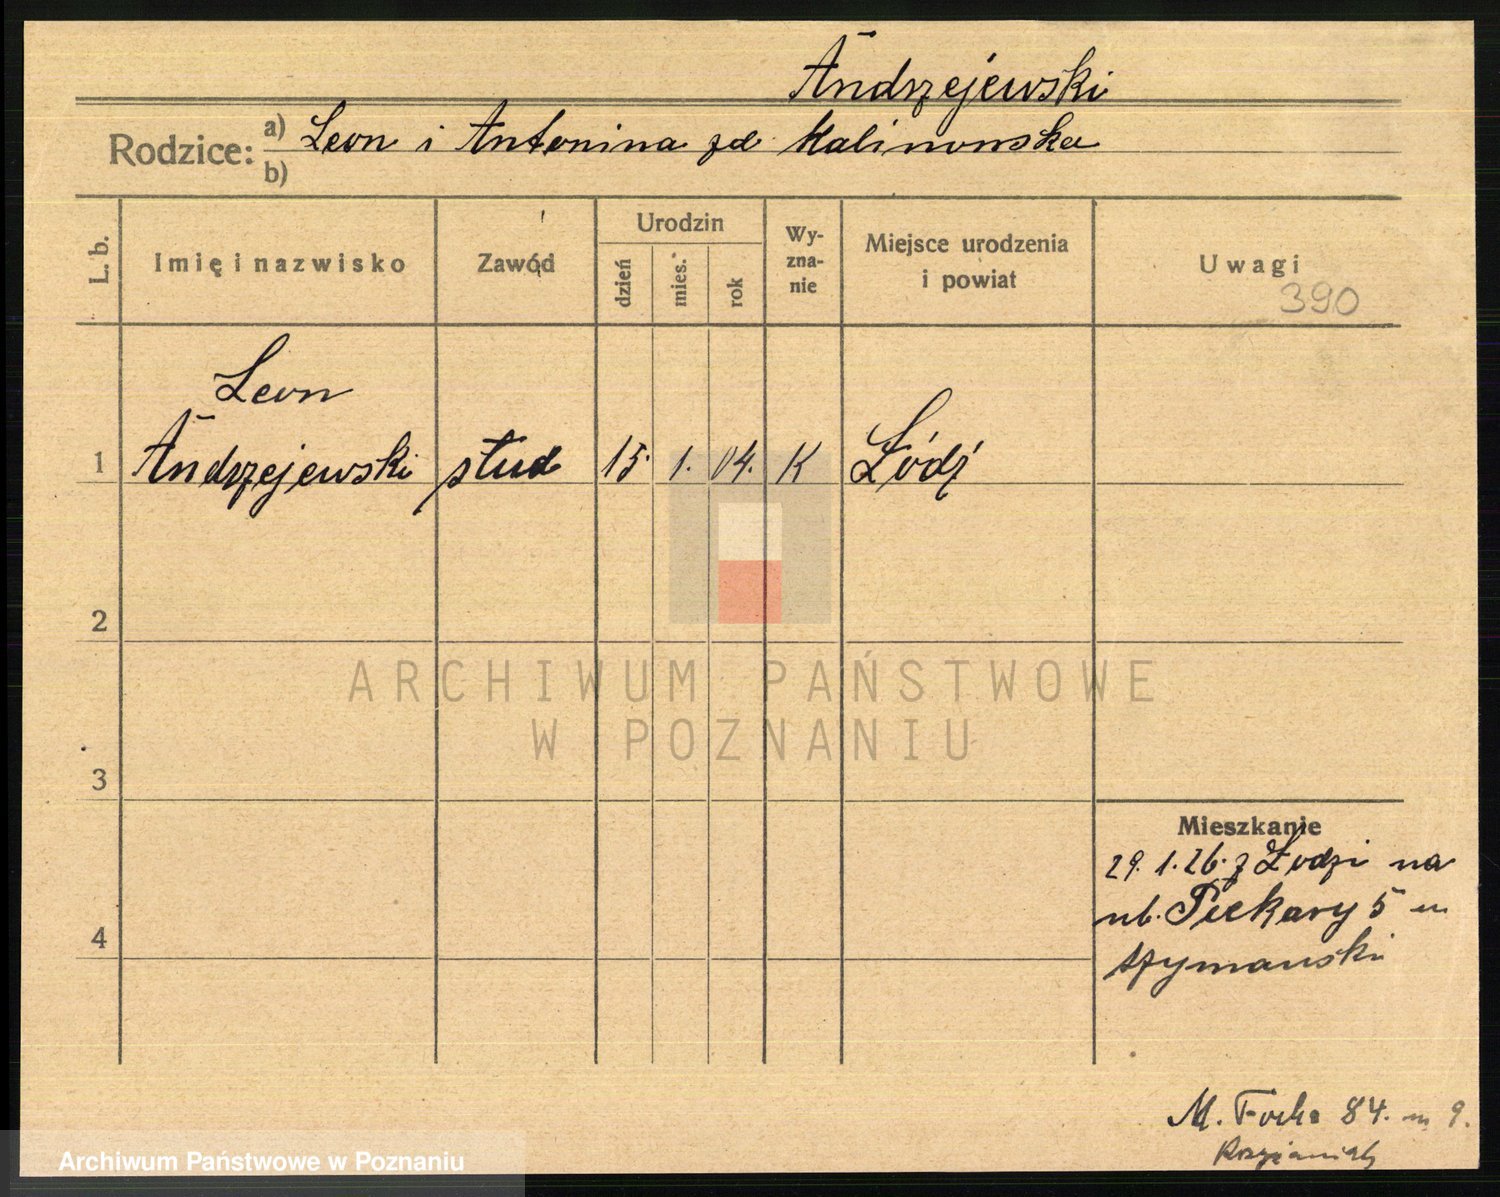 Andrzejewski
Rodzice: a) Leon i Antonina zd Kalinowska
b)
L. b.
Imię i nazwisko
Zawód
Urodzin
dzień
mies.
rok
Wy-
zna-
nie
Miejsce urodzenia
i powiat
Uwagi
390
Leon
1 Andrzejewski stud 15. 1. 04. K Łódź
2
ARCHIWUM PAŃSTWOWE
W POZNANIU
3
Mieszkanie
29.1.26. z Łodzi na
ul. Piekary 5 m
4
Szymański
M. Focha 84. m 9.
Archiwum Państwowe w Poznaniu